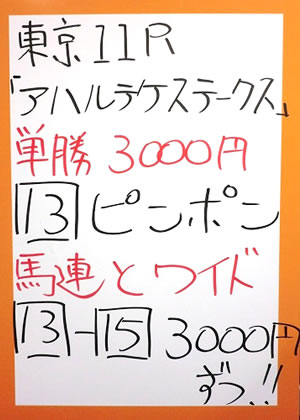 東京11R
「アハルテケステークス」
単勝 3000円
13 ピンポン
馬連とワイド
13-15 3000円
ずつ!!